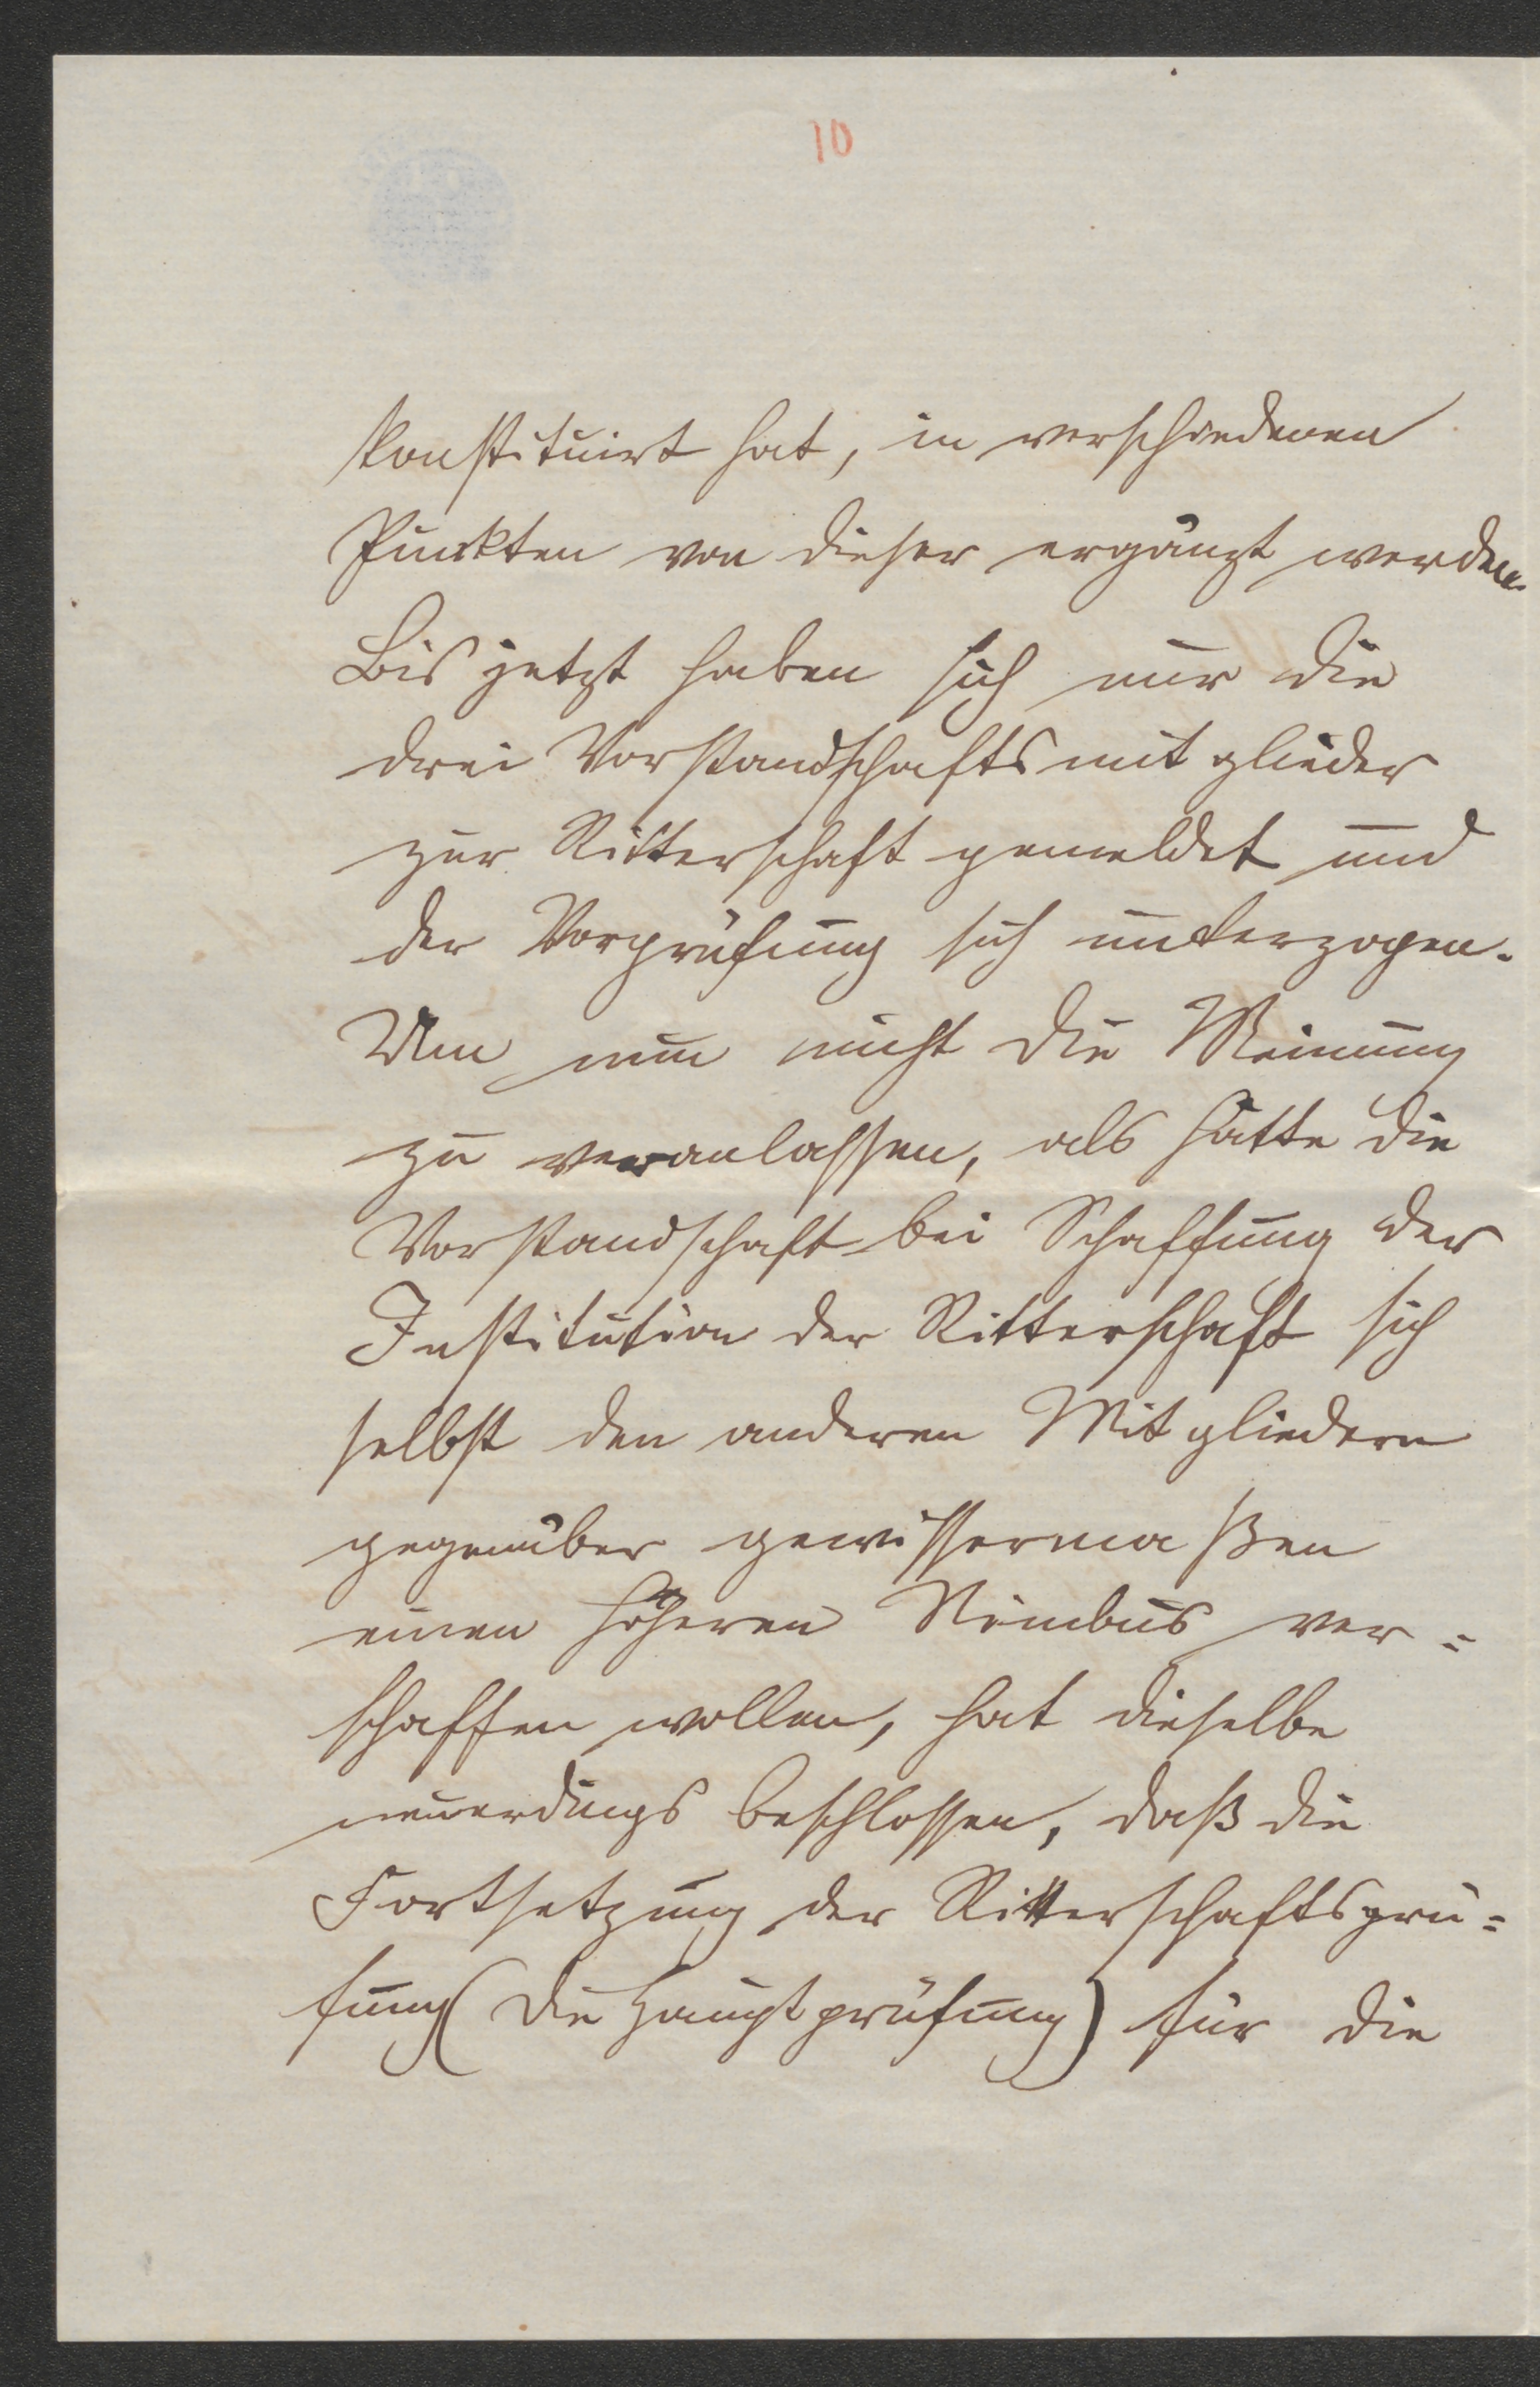 10
konstituirt hat, in verschiedenen
Punkten von dieser ergänzt werden.
Bis jetzt haben sich nur die
drei Vorstandschaftsmitglieder
zur Ritterschaft gemeldet und
der Vorprüfung sich unterzogen.
Um nun nicht die Meinung
zu veranlassen, als hätte die
Vorstandschaft bei Schaffung der
Institution der Ritterschaft sich
selbst den anderen Mitgliedern
gegenüber gewissermaßen
einen höheren Nimbus ver=
schaffen wollen, hat dieselbe
neuerdings beschlossen, daß die
Fortsetzung der Ritterschaftsprü=
fung (die Hauptprüfung) für die